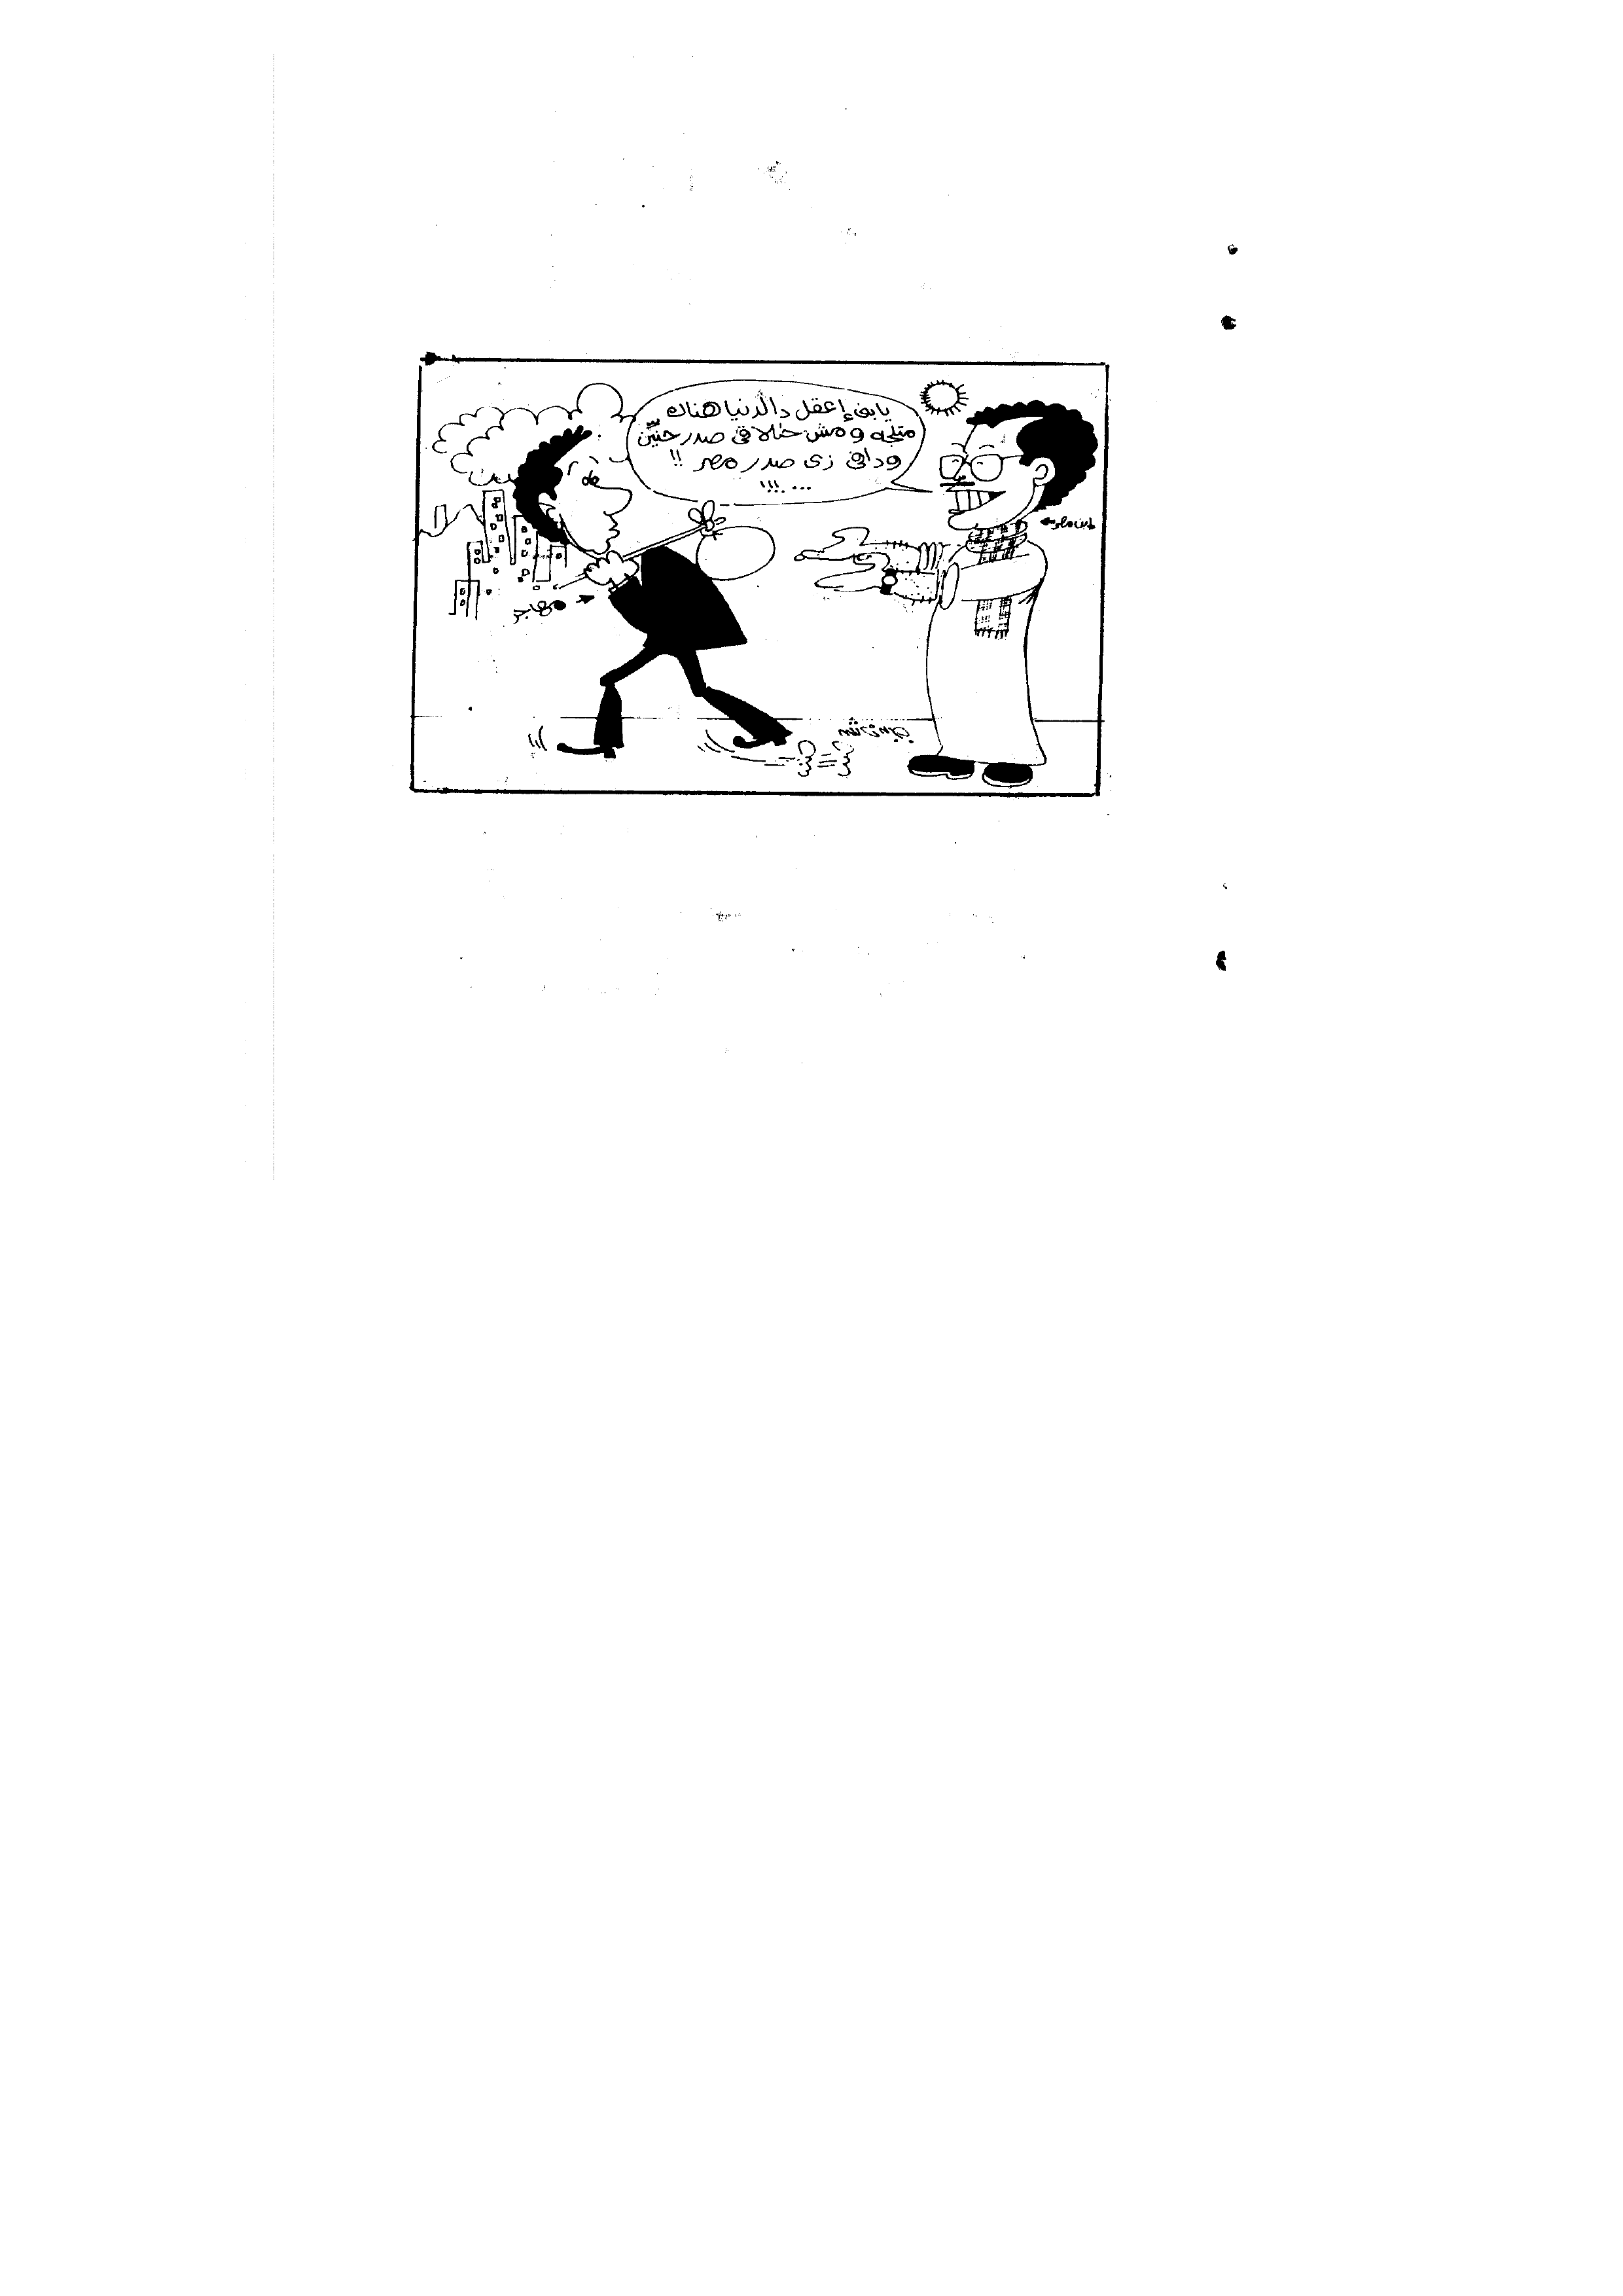 يابنى إعقل دا الدنيا هناك
متلجه ومش حتلاقى صدر حنيّن
ودافى زى صدر مصر !!
... !!!
مهاجر